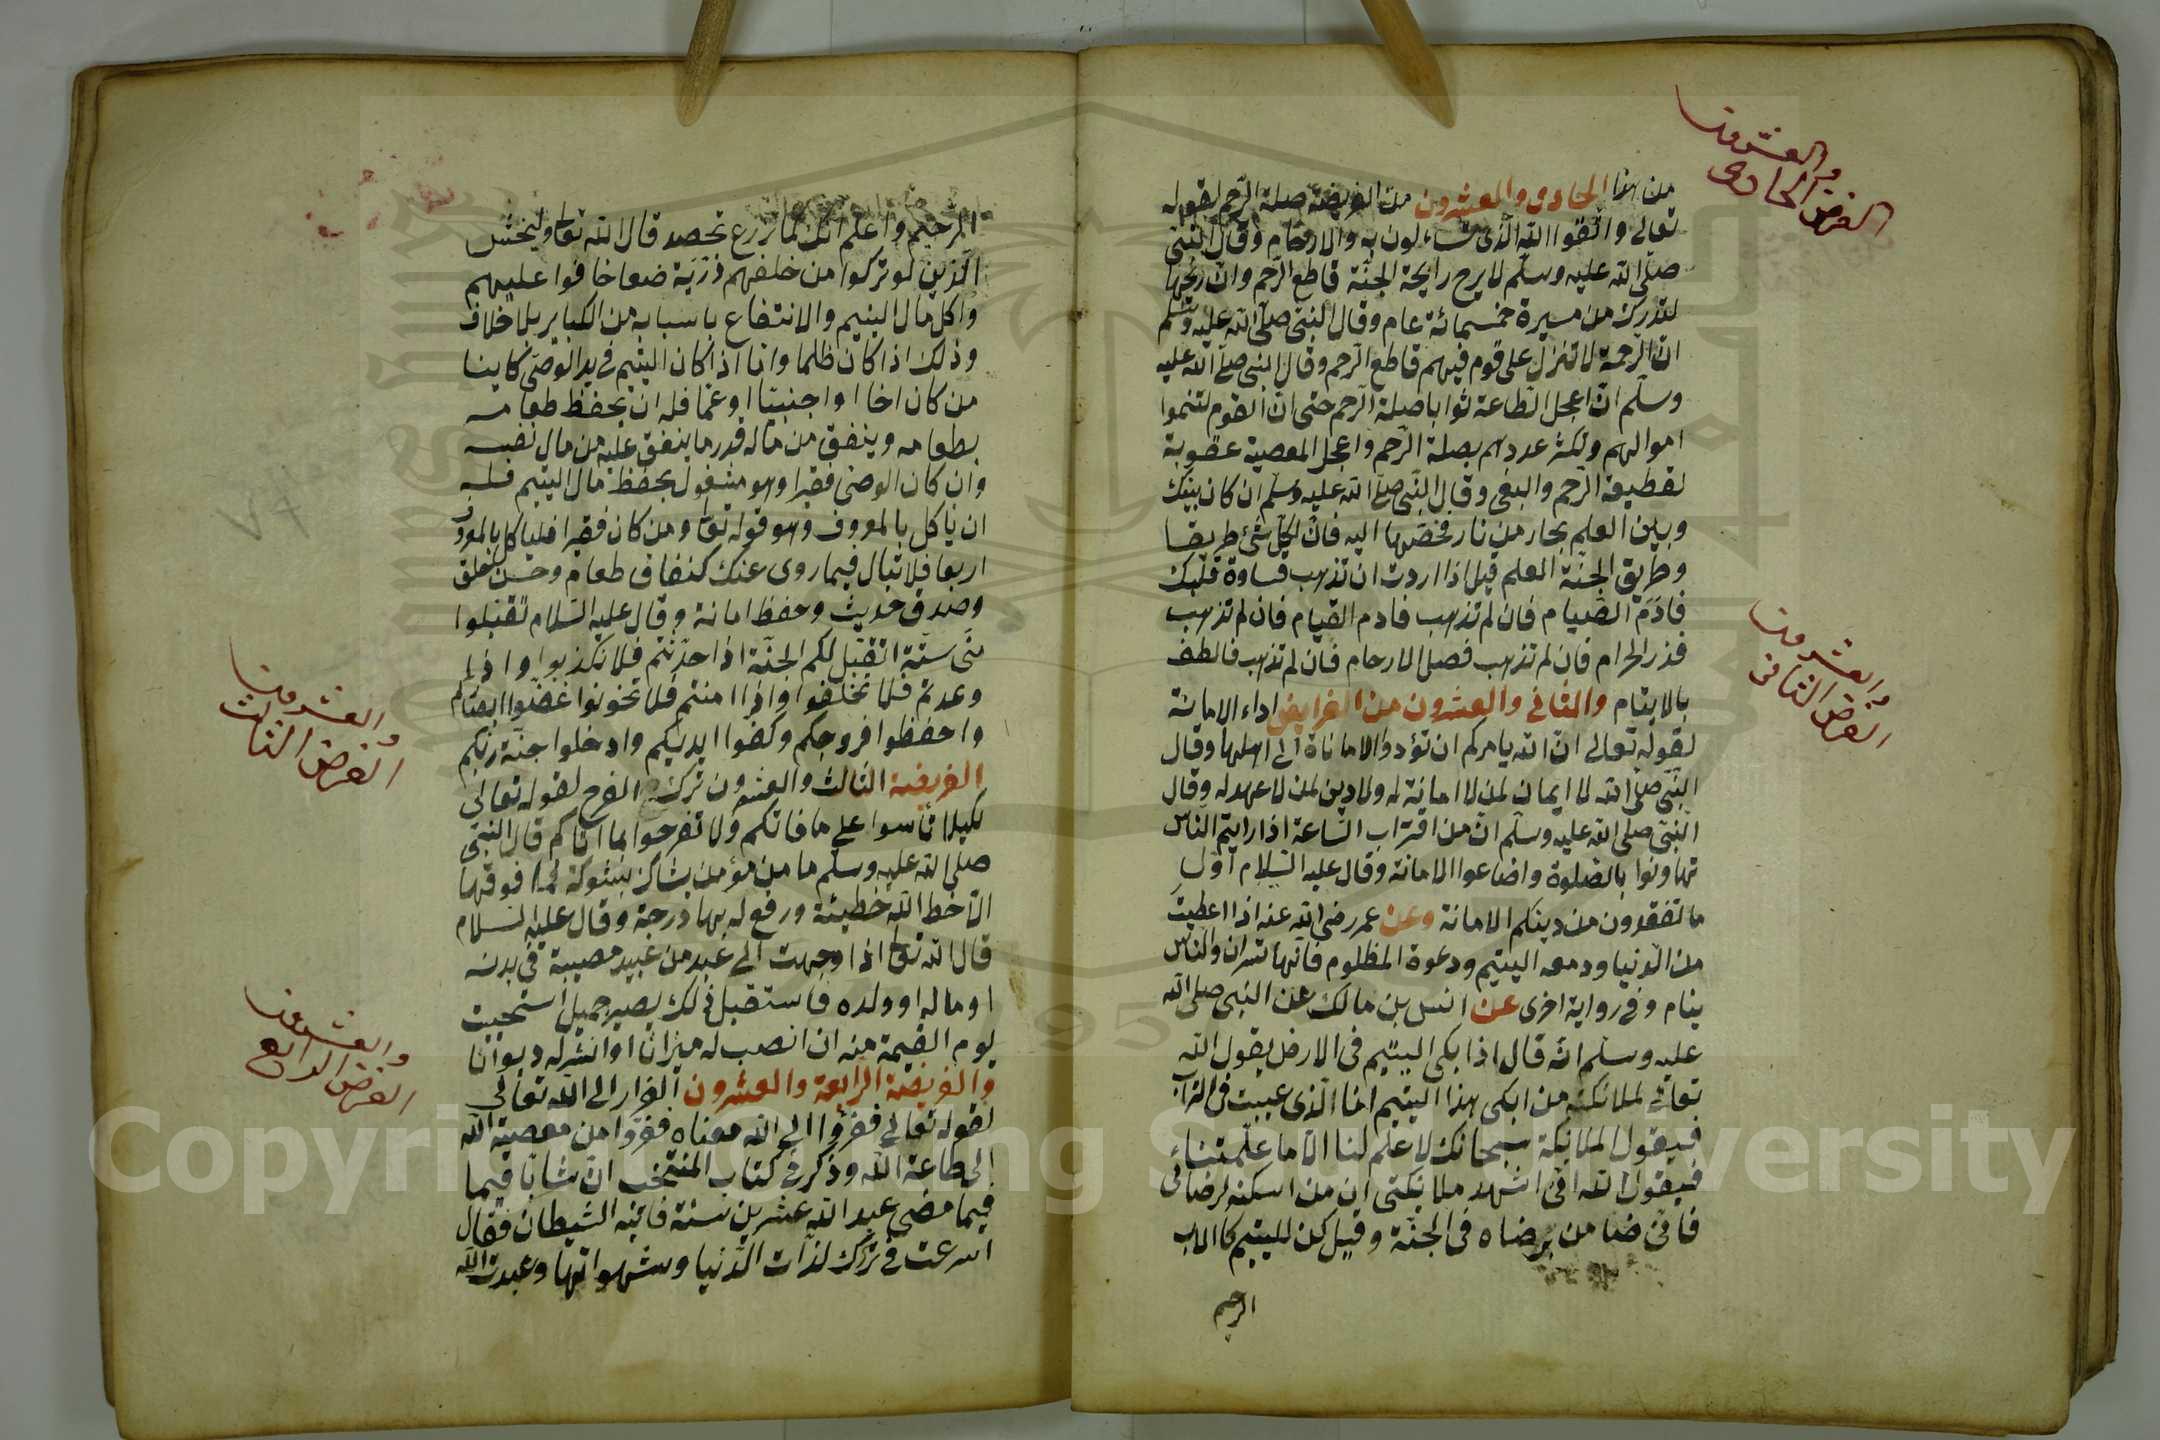 الفرض الحادى
والعشرون
من انفا الحادى والعشرون من الفريضة صلة الرّحم لقوله
تعالى واتّقوا الله الّذى تساءلون به والارحام وقال النّبى
صلّى الله عليه وسلّم لا يرح رايحة الجنّة قاطع الرّحم وانّ ريحها
لتدرك من مسيرة خمسمائة عام وقال النّبى صلّى الله عليه وسلم
انّ الرّحمة لا تنزل على قوم فيهم قاطع الرّحم وقال النبى صلّى الله عليه
وسلّم انّ اعجل الطّاعة ثوابا صلة الرّحم حتى انّ القوم لتنموا
اموالهم وتكثر عددهم بصلة الرّحم واعجل المعصية عقوبة
لقطيعة الرّحم والبغى وقال النّبى صلّى الله عليه وسلّم ان كان بينك
وبين العلم بحار من نار فخضها اليه فانّ لكلّ شئ طريقا
وطريق الجنّة العلم قيل اذا اردت ان تذهب قساوة قلبك
فادم الصّيام فان لم تذهب فادم القيام فان لم تذهب
فذر الحرام فان لم تذهب فصل الارحام فان لم تذهب فالطف
بالايتام والثانى والعشرون من الفرايض اداء الامانة
الفرض الثانى
والعشرون
لقوله تعالى انّ الله يامركم ان تؤدوا الامانات الى اهلها وقال
النّبى صلّى الله لا ايمان لمن لا امانة له ولا دين لمن لا عهد له وقال
النّبى صلى الله عليه وسلّم انّ من اقتراب السّاعة اذا رايتم النّاس
تهاونوا بالصّلوة واضاعوا الامانة وقال عليه السّلام اوّل
ما تفقدون من دينكم الامانة وعن عمر رضى الله عنه اذا اعطيت
من الدّنيا ودمعه اليتيم ودعوة المظلوم فانّها تسران والنّاس
ينام وفى رواية اخرى عن انس بن مالك عن النبى صلى الله
عليه وسلّم انّه قال اذا بكى اليتيم فى الارض يقول الله
تعالى لملائكته من ابكى هذا اليتيم انا الّذى غيبت فى التراب
فيقول الملائكة سبحانك لا علم لنا الّا ما علّمتناء
فيقول الله انّى اشهد ملائكتى ان من اسكنه لرضائى
فانّى ضامن برضاه فى الجنّة وقيل كن لليتيم كالاب
الرحيم
الرّحيم واعلم انّك كما تزرع تحصد قال الله تعالى وليخش
الّذين لو تركوا من خلفهم ذرّيّة ضعافا خافوا عليهم
واكل مال اليتيم والانتفاع باسبابه من الكبائر بلا خلاف
وذلك اذا كان ظلما وامّا اذا كان اليتيم فى يد الوصىّ كاينا
من كان اخا او اجنبيّا او عمّا فله ان يحفظ طعامه
بطعامه وينفق من ماله قدر ما ينفق عليه من مال نفسه
وان كان الوصىّ فقيرا وهو مشغول بحفظ مال اليتيم فله
ان ياكل بالمعروف وهو قوله تعالى ومن كان فقيرا فلياكل بالمعروف
اربعا فلا تبال فيما روى عنك كنفاف طعام وحسن خلق
وصدق حديث وحفظ امانة وقال عليه السّلام تقبّلوا
منّى ستّة اتقبّل لكم الجنّة اذا حدّثتم فلا تكذبوا واذا
وعدتم فلا تخلفوا واذا امنتم فلا تخونوا غضّوا ابصاركم
واحفظوا فروجكم وكفّوا ايديكم وادخلوا جنّة ربّكم
الفرض الثالث
والعشرون
الفريضة الثالث والعشرون ترك الفرح لقوله تعالى
لكيلا تأسوا على ما فاتكم ولا تفرحوا بما اتاكم قال النبّى
صلى الله عليه وسلم ما من مؤمن يشاك بشوكة فما فوقها
الّا حط الله خطيئة ورفع له بها درجة وقال عليه السلام
قال الله تعالى اذا وجهت الى عبد من عبيد مصيبة فى بدنه
او ماله او ولده فاستقبل ذلك بصبر جميل استحييت
يوم القيمة منه ان انصب له ميزانا او انشر له ديوانا
الفرض الرابع
والعشرون
والفريضة الرّابعة والعشرون الفرار الى الله تعالى
لقوله تعالى ففرّوا الى الله معناه ففرّوا من معصية الله
الى طاعة الله وذكر فى كتاب المنتخب انّ شابّا فيما
فيما مضى عبد الله عشرين سنة فاتيه الشيطان فقال
اسرعت فى ترك لذّات الدّنيا وشهواتها وعبدت الله